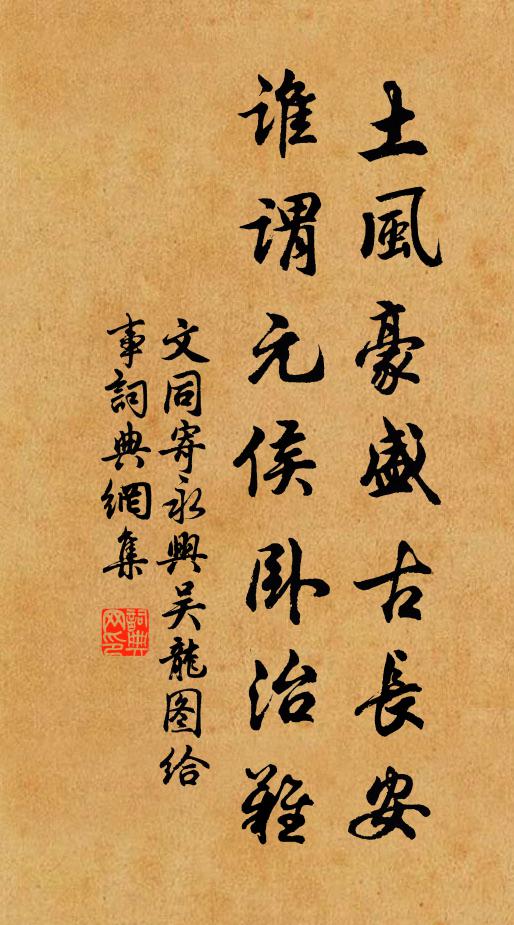 土風豪盛古長安
谁謂元侯卧治難
文同寄永興吴龍图给
事詞典網集
詞典网印